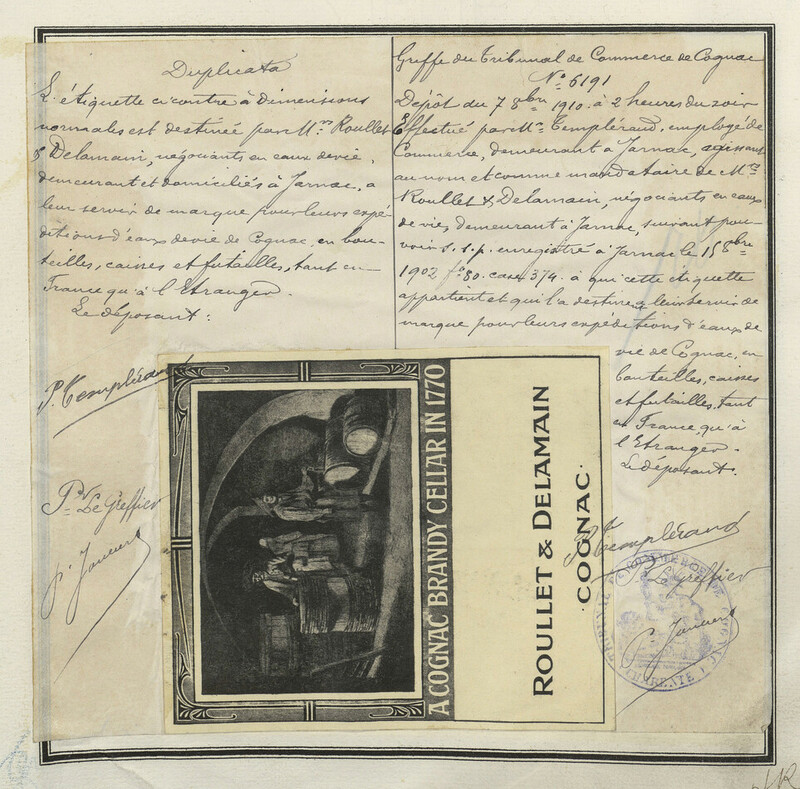 Duplicata
L'étiquette ci contre à dimensions
normales est destinée par M.rs Roullet
& Delamain, négociants en eaux de vie,
demeurant et domiciliés à Jarnac, a
leur servir de marque pour leurs expé-
ditions d'eaux de vie de Cognac, en bou-
teilles, caisses et futailles, tant en
France qu'à l'Etranger.
Le déposant:
P. Templéraud
Pr Le Greffier
Greffe du Tribunal de Commerce de Cognac
N.o 6191
Dépôt du 7 8bre 1910. à 2 heures du soir
Effectué par M.r Templéraud, employé de
Commerce, demeurant à Jarnac, agissant
au nom et comme mandataire de M.rs
Roullet & Delamain, négociants en eaux
de vie, demeurant à Jarnac, suivant pou-
voir s.s.p. enregistré à Jarnac le 15 8bre
1902 fo 80. case 374. à qui cette étiquette
appartient et qui l'a destinée a leur servir de
marque pour leurs expéditions d'eaux de
vie de Cognac, en
bouteilles, caisses
et futailles, tant
en France, qu'à
l'Etranger.
Le déposant.
P. Templéraud
Pr Le Greffier
A COGNAC BRANDY CELLAR IN 1770
ROULLET & DELAMAIN
·COGNAC·
TRIBUNAL DE COMMERCE DE COGNAC
CHARENTE